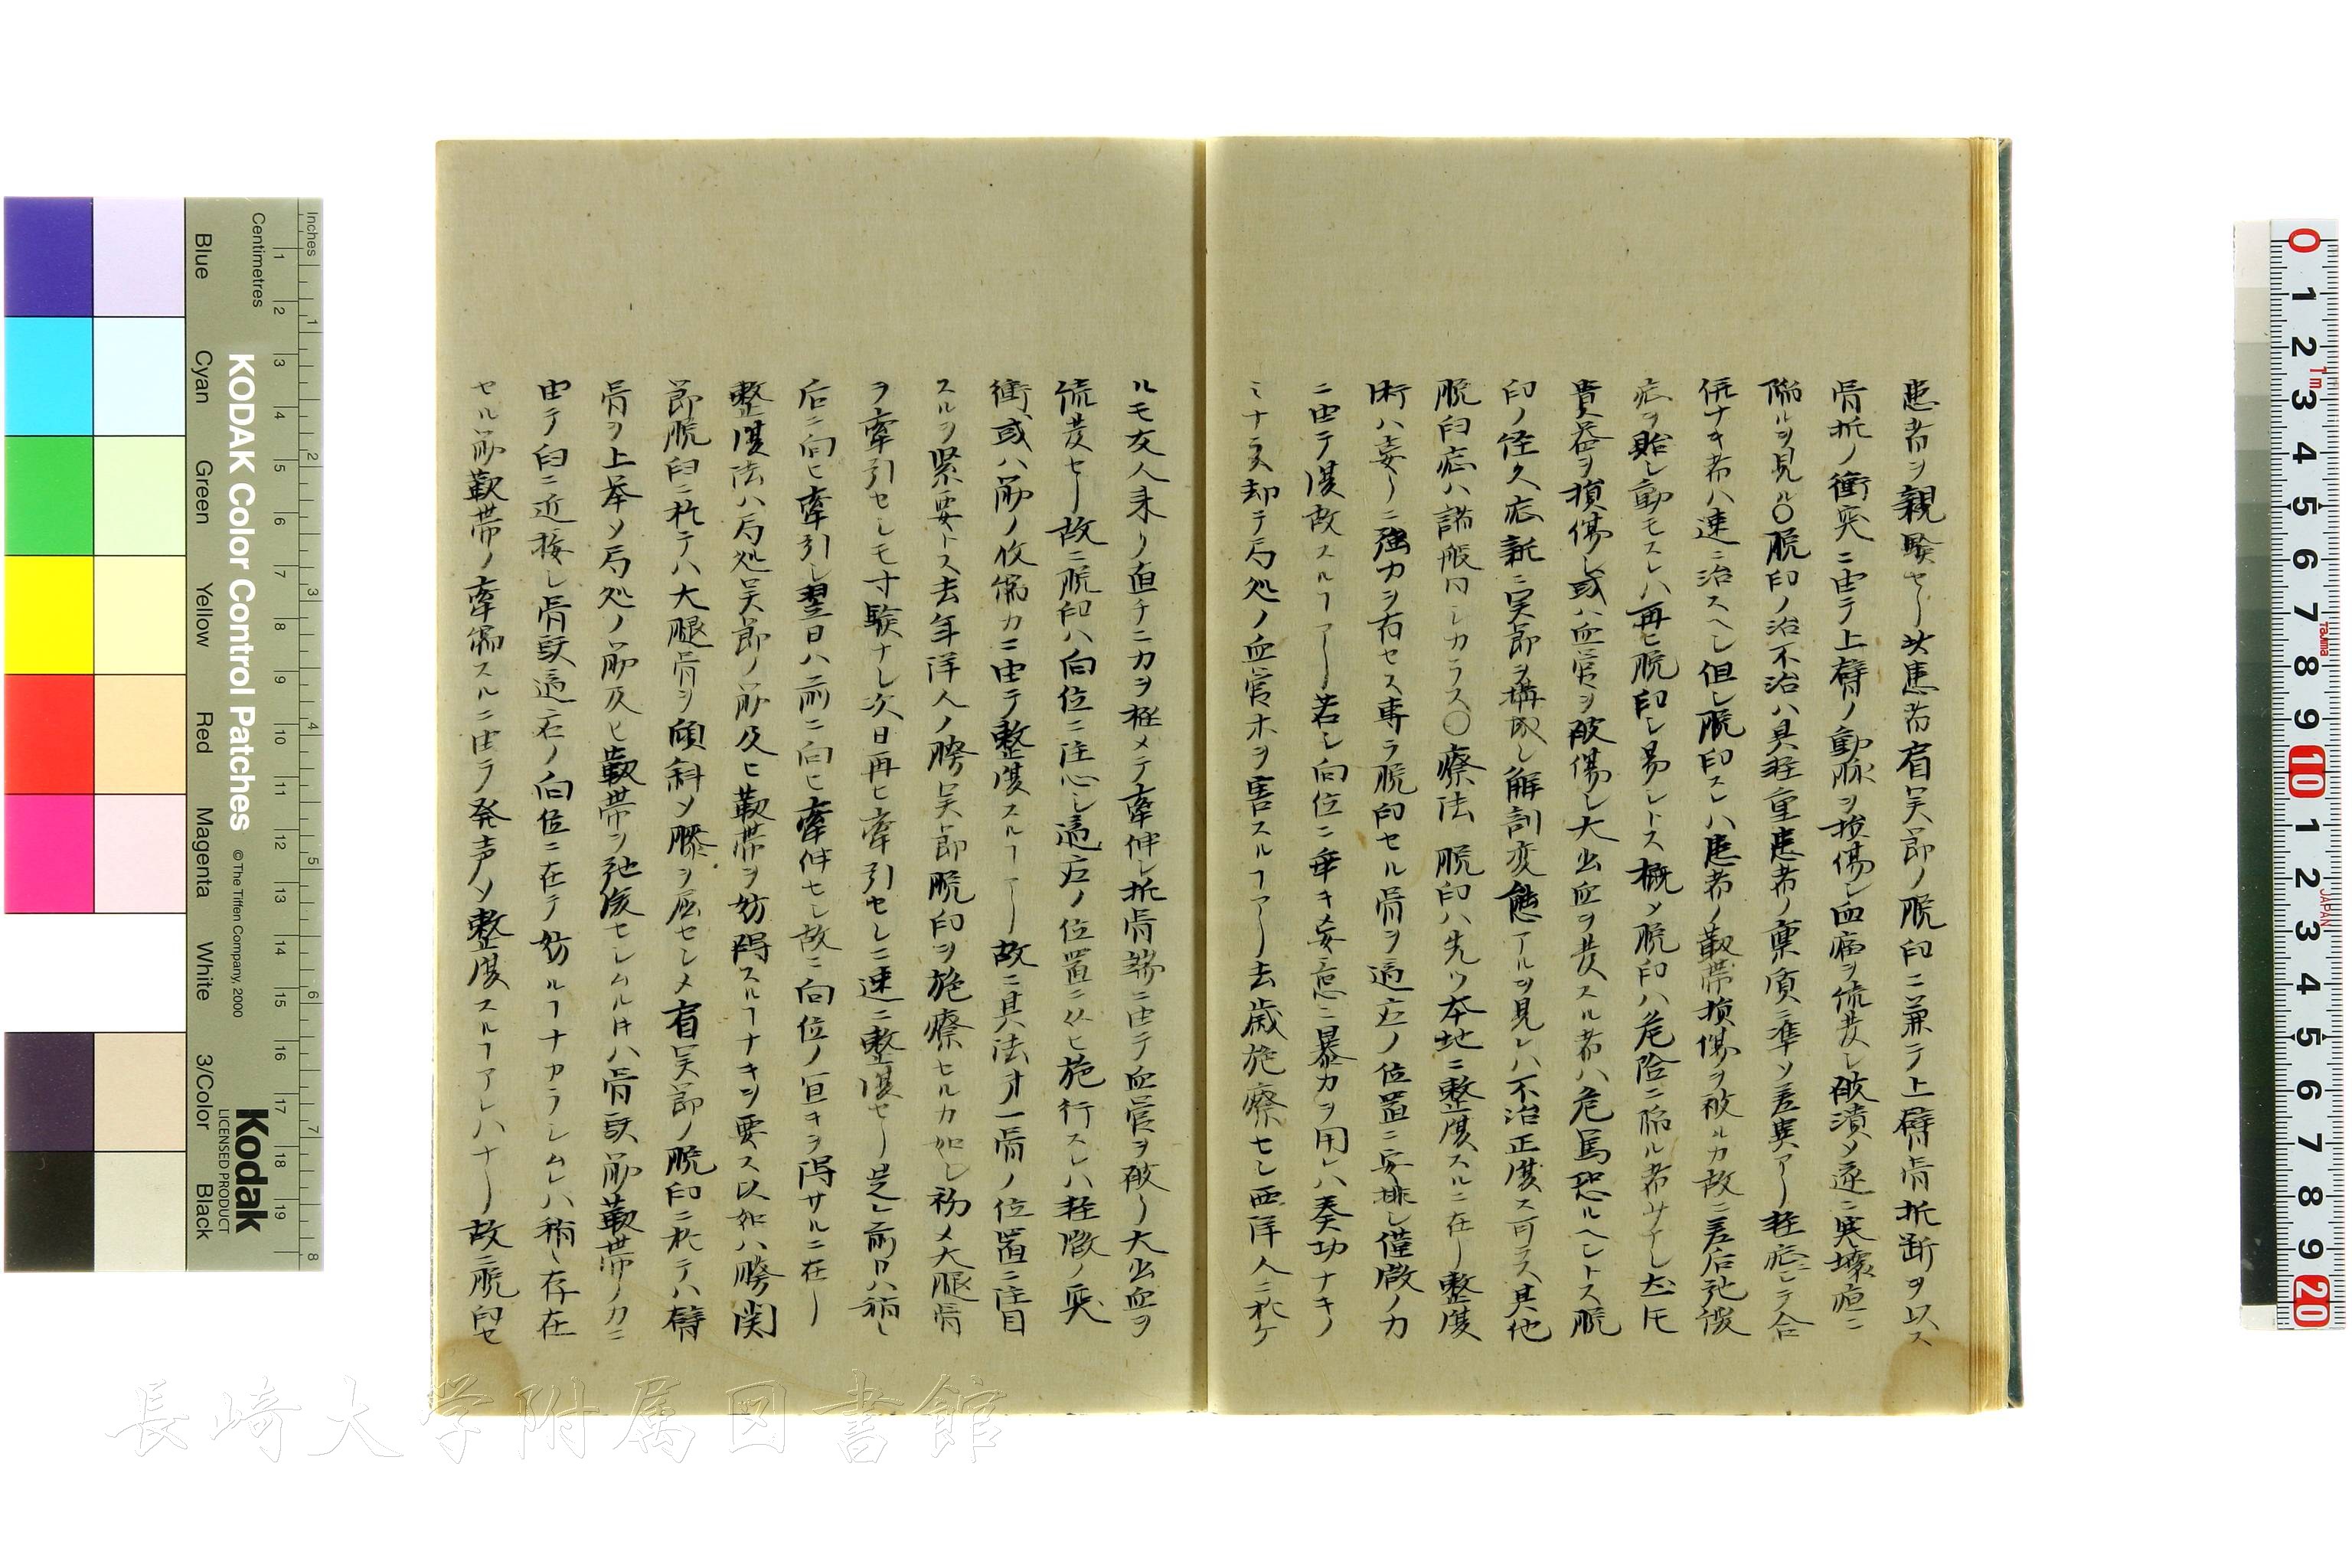 患者ヲ親験セリ此患者肩関節ノ脱臼ニ兼テ上臂骨折断ヲ以ス
骨折ノ衝突ニ由テ上臂ノ動脉ヲ損傷シ血瘤ヲ流発シ破潰メ遂ニ寒壊疽ニ
陥ルヲ見ル〇脱臼ノ治不治ハ其軽重患者ノ稟質ニ準ソ差異アリ軽症ニテ合
併ナキ者ハ速ニ治スヘシ但シ脱臼スレハ患者ノ靱帯損傷ヲ被ルカ故ニ差后弛緩
症ヲ貽シ動モスレハ再ヒ脱臼シ易シトス概メ脱臼ハ危険ニ陥ル者少ナシ𪜈
貴器ヲ損傷シ或ハ血管ヲ破傷シ大出血ヲ発スル者ハ危篤恐ルヘシトス脱
臼ノ経久症新ニ関節ヲ構成シ解剖変態アルヲ見レハ不治正復ス可ラス其他
脱臼症ハ諸般同シカラス〇療法 脱臼ハ先ツ本地ニ整復スルニ在リ整復
術ハ妄リニ強力ヲ右セス専ラ脱臼セル骨ヲ適応ノ位置ニ安排シ僅微ノ力
ニ由テ復故スルヿアリ若シ向位ニ乖キ妄意ニ暴力ヲ用レハ奏功ナキノ
ミナラス却テ局処ノ血管ホヲ害スルヿアリ去歳施療セシ西洋人ニ於ケ
ルモ友人来リ直チニ力ヲ極メテ牽伸シ折骨端ニ由テ血管ヲ破リ大出血ヲ
流発セリ故ニ脱臼ハ向位ニ注心シ適応ノ位置ニ从ヒ施行スレハ軽微ノ突
衝或ハ筋ノ收縮力ニ由テ整復スルヿアリ故ニ其法才一骨ノ位置ニ注目
スルヲ緊要トス去年洋人ノ胯関節脱臼ヲ施療セルカ如シ初メ大腿骨
ヲ牽引セシモ寸験ナシ次日再ヒ牽引セシニ速ニ整復セリ是レ前日ハ稍〻
后ニ向ヒ牽引シ翌日ハ前ニ向ヒ牽伸セシ故ニ向位ノ宜キヲ得サルニ在リ
整復法ハ局処関節ノ筋及ヒ靱帯ヲ妨碍スルヿナキヲ要ス以如ハ胯関
節脱臼ニ於テハ大腿骨ヲ傾斜メ膝ヲ屈セシメ肩関節ノ脱臼ニ於テハ臂
骨ヲ上挙ソ局処ノ筋及ヒ靱帯ヲ弛緩セシムル片ハ骨頭筋靱帯ノカニ
由テ臼ニ近接シ骨頭適応ノ向位ニ在テ妨ルヿナカラシムレハ稍〻存在
セル筋靱帯ノ牽縮スルニ由テ発声ソ整復スルヿアレハナリ故ニ脱臼セ
Inches
Centimetres
KODAK Color Control Patches
© The Tiffen Company, 2000
Kodak
LICENSED PRODUCT
Blue
Cyan
Green
Yellow
Red
Magenta
White
3/Color
Black
長崎大学附属図書館